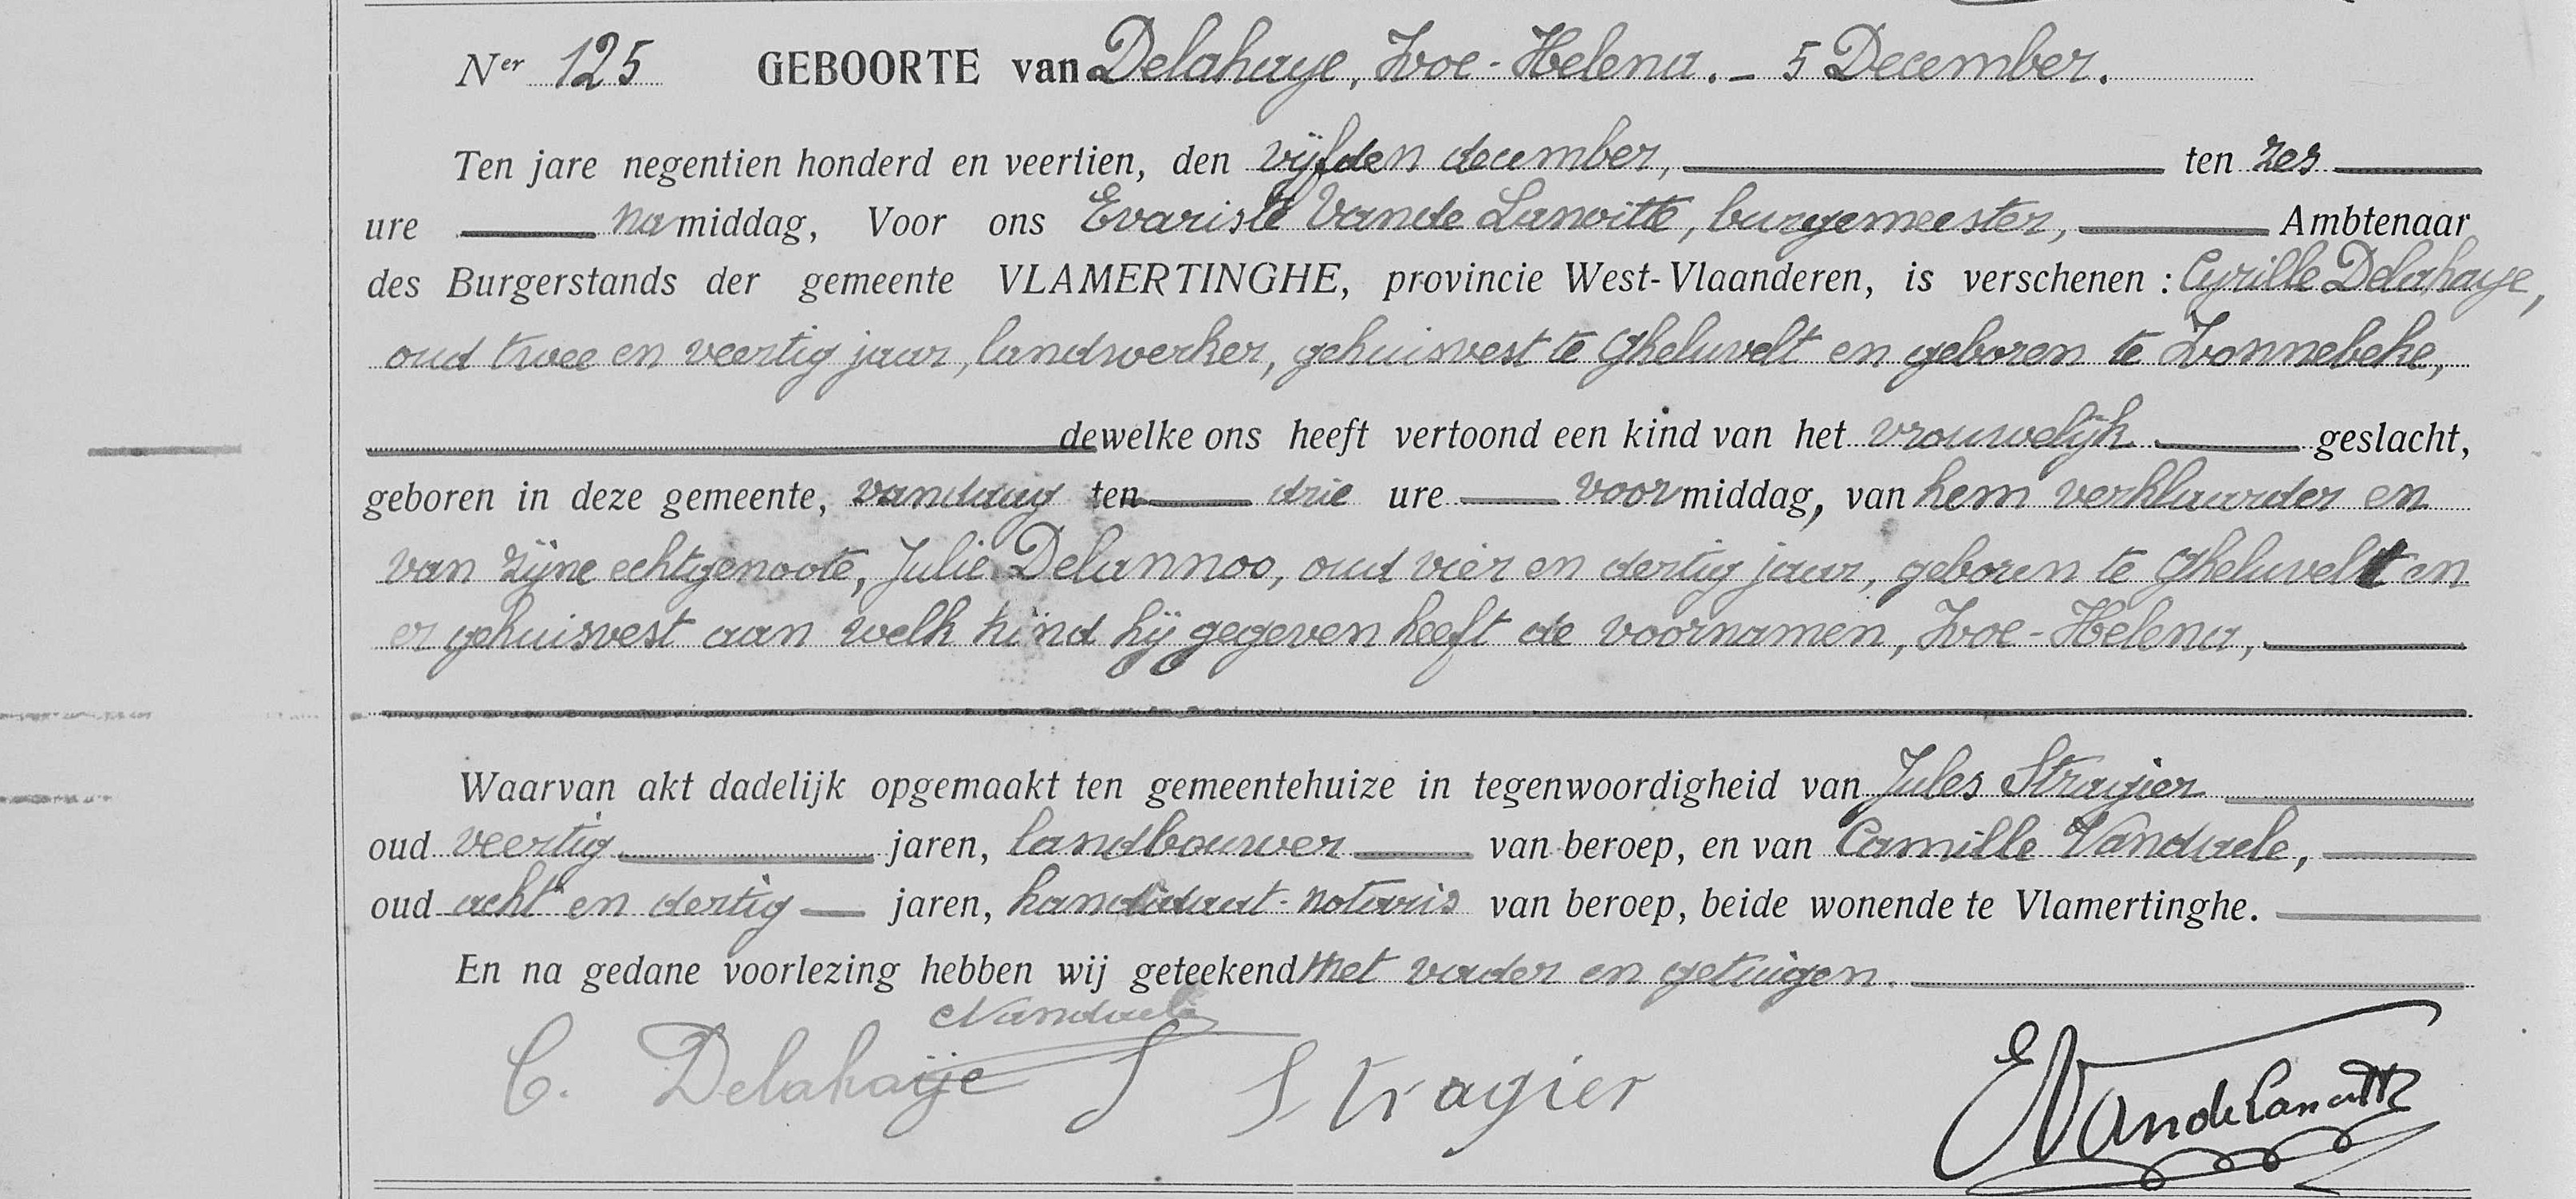 Ner 125 GEBOORTE van Delahaye, Ivoe-Helena. - 5 December.
Ten jare negentien honderd en veertien, den vijfden december, ten zes
ure namiddag, Voor ons Evariste Vande Lanoitte, burgemeester, Ambtenaar
des Burgerstands der gemeente VLAMERTINGHE, provincie West-Vlaanderen, is verschenen : Cyrille Delahaye,
oud twee en veertig jaar, landwerker, gehuisvest te Gheluvelt en geboren te Zonnebeke,
dewelke ons heeft vertoond een kind van het vrouwelijk geslacht,
geboren in deze gemeente, vandaag ten drie ure voormiddag, van hem verklaarder en
van zijne echtgenoote, Julie Delannoo, oud vier en dertig jaar, geboren te Gheluvelt en
er gehuisvest aan welk kind hij gegeven heeft de voornamen, Ivoe-Helena,
Waarvan akt dadelijk opgemaakt ten gemeentehuize in tegenwoordigheid van Jules Stragier
oud veertig jaren, landbouwer van beroep, en van Camille Vandaele,
oud acht en dertig jaren, kandidaat-notaris van beroep, beide wonende te Vlamertinghe.
En na gedane voorlezing hebben wij geteekend met vader en getuigen.
CVandaele
C. Delahaije J Stragier EVandeLanoitte